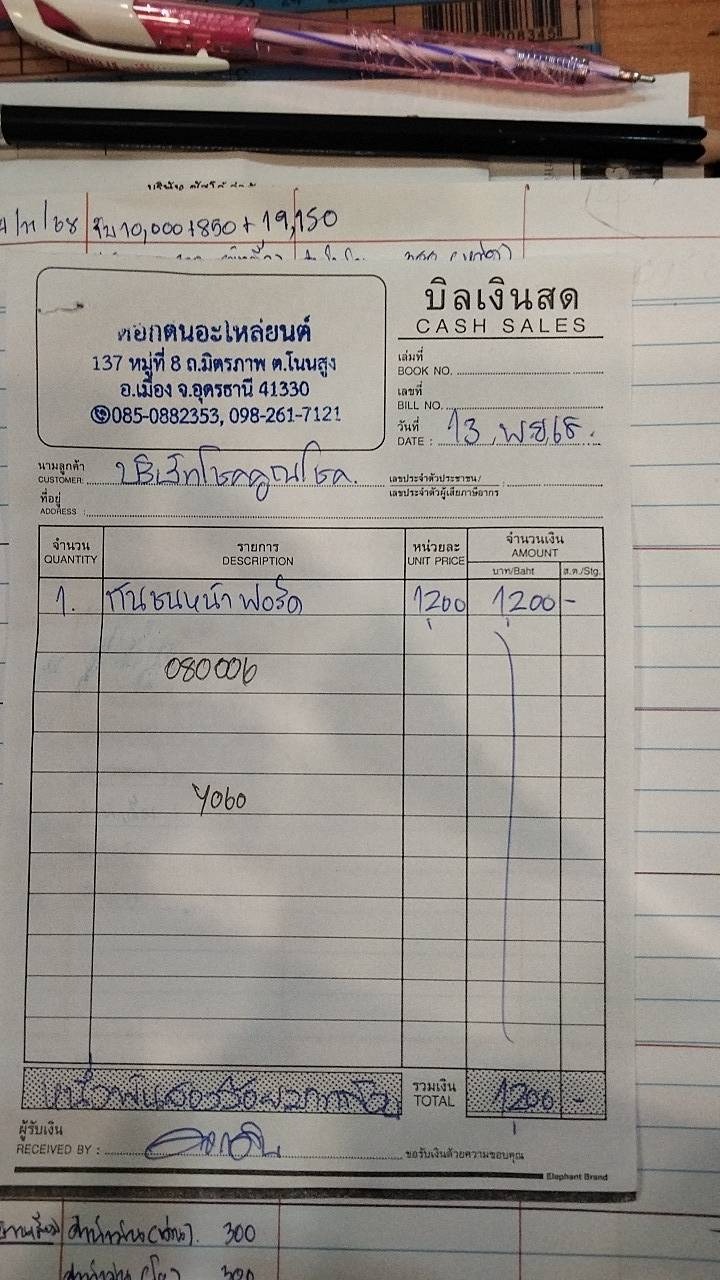 4/11/68 รับ 10,000+850+19,150
บิลเงินสด
CASH SALES
ดอกตนอะไหล่ยนต์
137 หมู่ที่ 8 ถ.มิตรภาพ ต.โนนสูง
อ.เมือง จ.อุดรธานี 41330
085-0882353, 098-261-7121
เล่มที่
BOOK NO.
เลขที่
BILL NO.
วันที่
DATE : 13 พ.ย 68
นามลูกค้า
CUSTOMER: บริษัทโชคคูณโชค
เลขประจำตัวประชาชน/
เลขประจำตัวผู้เสียภาษีอากร
ที่อยู่
ADDRESS :
จำนวน รายการ หน่วยละ จำนวนเงิน
QUANTITY DESCRIPTION UNIT PRICE AMOUNT
บาท/Baht ส.ต./Stg.
1. กันชนหน้า ฟอร์ด 1200 1200 -
080006
รวมเงิน
TOTAL 1200 -
หนึ่งพันสองร้อยบาทถ้วน
ผู้รับเงิน
RECEIVED BY :
ขอรับเงินด้วยความขอบคุณ
Elephant Brand
300